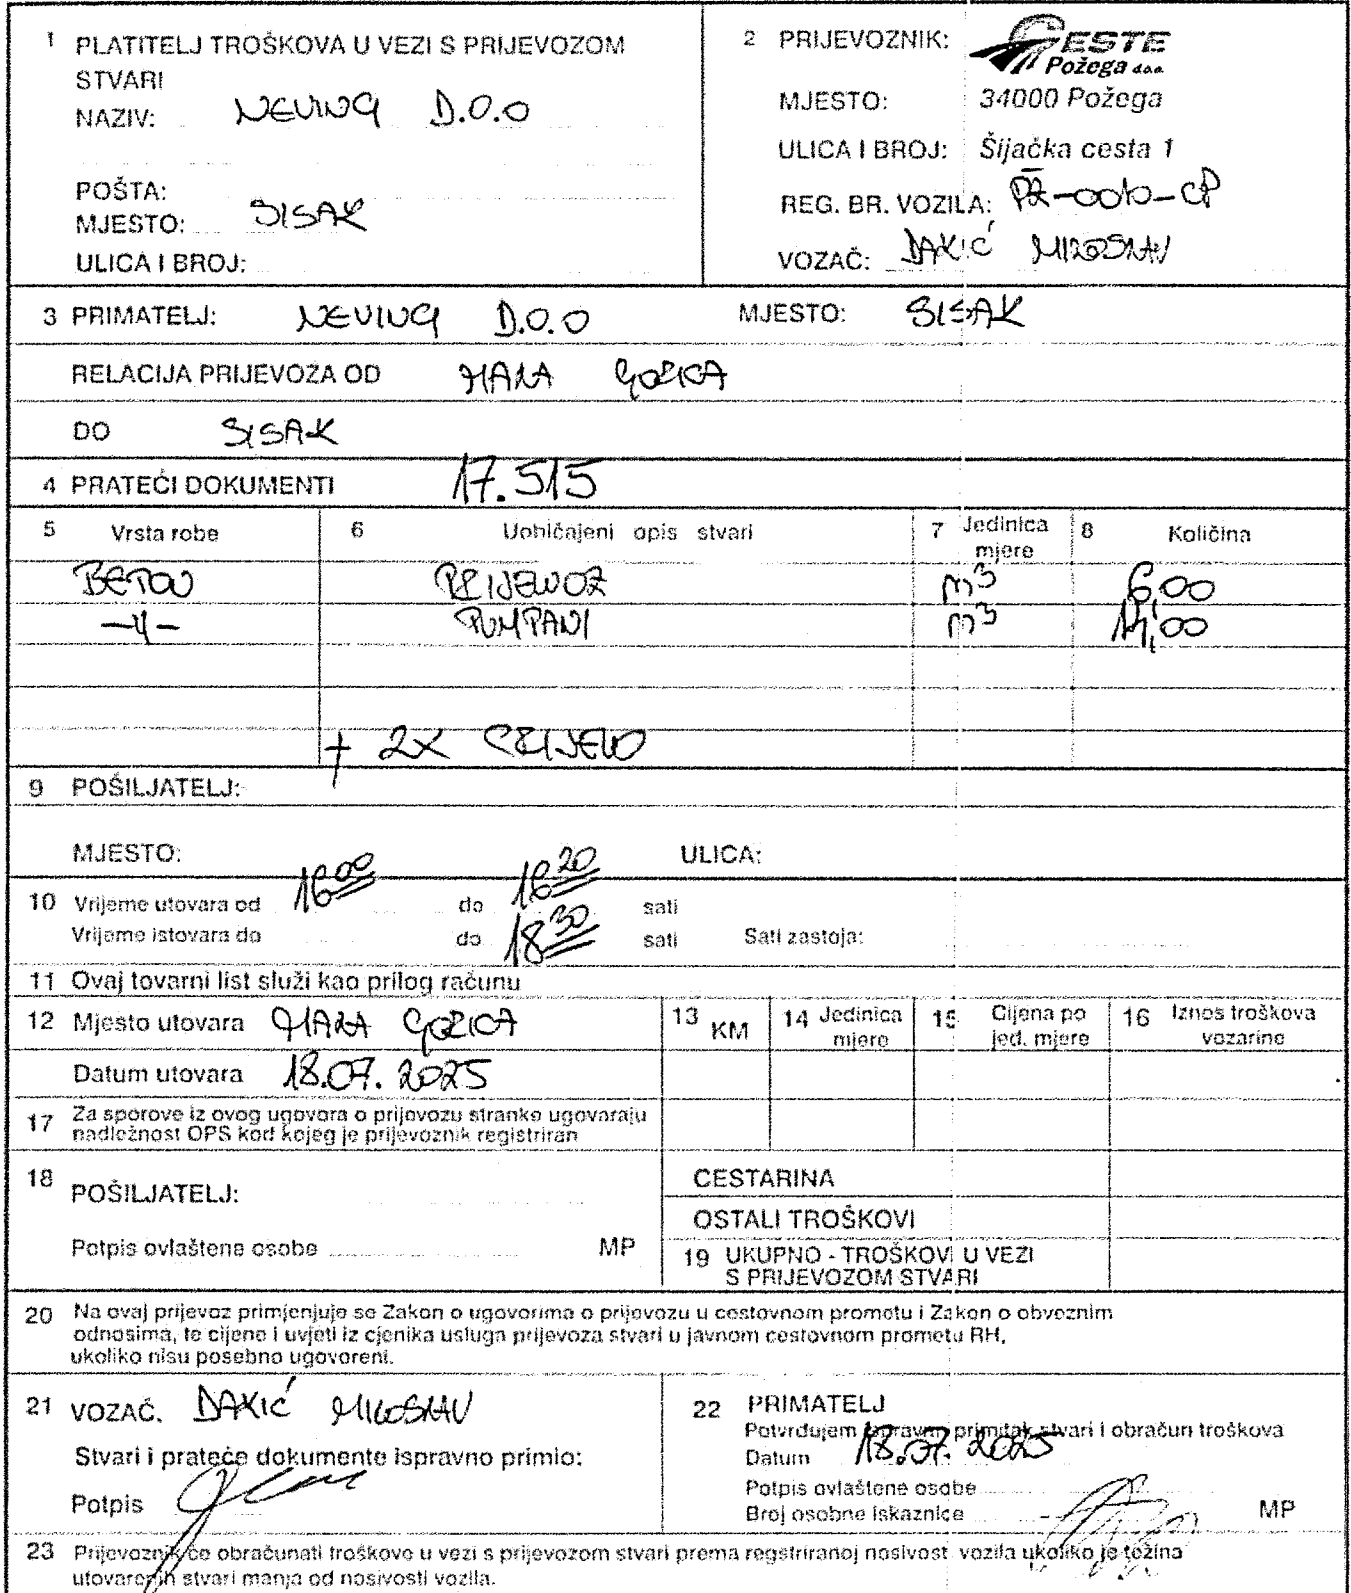 1 PLATITELJ TROŠKOVA U VEZI S PRIJEVOZOM
STVARI
NAZIV: NEVING D.O.O
POŠTA:
MJESTO: SISAK
ULICA I BROJ:
2 PRIJEVOZNIK: CESTE
Požega d.o.o.
MJESTO: 34000 Požega
ULICA I BROJ: Šijačka cesta 1
REG. BR. VOZILA: PŽ-0010-CP
VOZAČ: DAKIĆ MIROSLAV
3 PRIMATELJ: NEVING D.O.O MJESTO: SISAK
RELACIJA PRIJEVOZA OD MALA GORICA
DO SISAK
4 PRATEĆI DOKUMENTI 17.515
5 Vrsta robe 6 Uobičajeni opis stvari 7 Jedinica mjere 8 Količina
BETON PRIJEVOZ m3 6,00
-॥- PUMPANI m3 14,00
+ 2X CRIJEVO
9 POŠILJATELJ:
MJESTO: ULICA:
10 Vrijeme utovara od 16 00 do 16 20 sati
Vrijeme istovara do do 18 30 sati Sati zastoja:
11 Ovaj tovarni list služi kao prilog računu
12 Mjesto utovara MALA GORICA
Datum utovara 18.07.2025
13 KM 14 Jedinica mjere 15 Cijena po jed. mjere 16 Iznos troškova vozarine
17 Za sporove iz ovog ugovora o prijevozu stranke ugovaraju
nadležnost OPS kod kojeg je prijevoznik registriran
18 POŠILJATELJ:
Potpis ovlaštene osobe MP
CESTARINA
OSTALI TROŠKOVI
19 UKUPNO - TROŠKOVI U VEZI
S PRIJEVOZOM STVARI
20 Na ovaj prijevoz primjenjuje se Zakon o ugovorima o prijevozu u cestovnom prometu i Zakon o obveznim
odnosima, te cijene i uvjeti iz cjenika usluga prijevoza stvari u javnom cestovnom prometu RH,
ukoliko nisu posebno ugovoreni.
21 VOZAČ. DAKIĆ MIROSLAV
Stvari i prateće dokumente ispravno primio:
Potpis
22 PRIMATELJ
Potvrđujem ispravan primitak stvari i obračun troškova
Datum 18.07.2025
Potpis ovlaštene osobe
Broj osobne iskaznice MP
23 Prijevoznik će obračunati troškove u vezi s prijevozom stvari prema regstriranoj nosivost vozila ukoliko je težina
utovarenih stvari manja od nosivosti vozila.